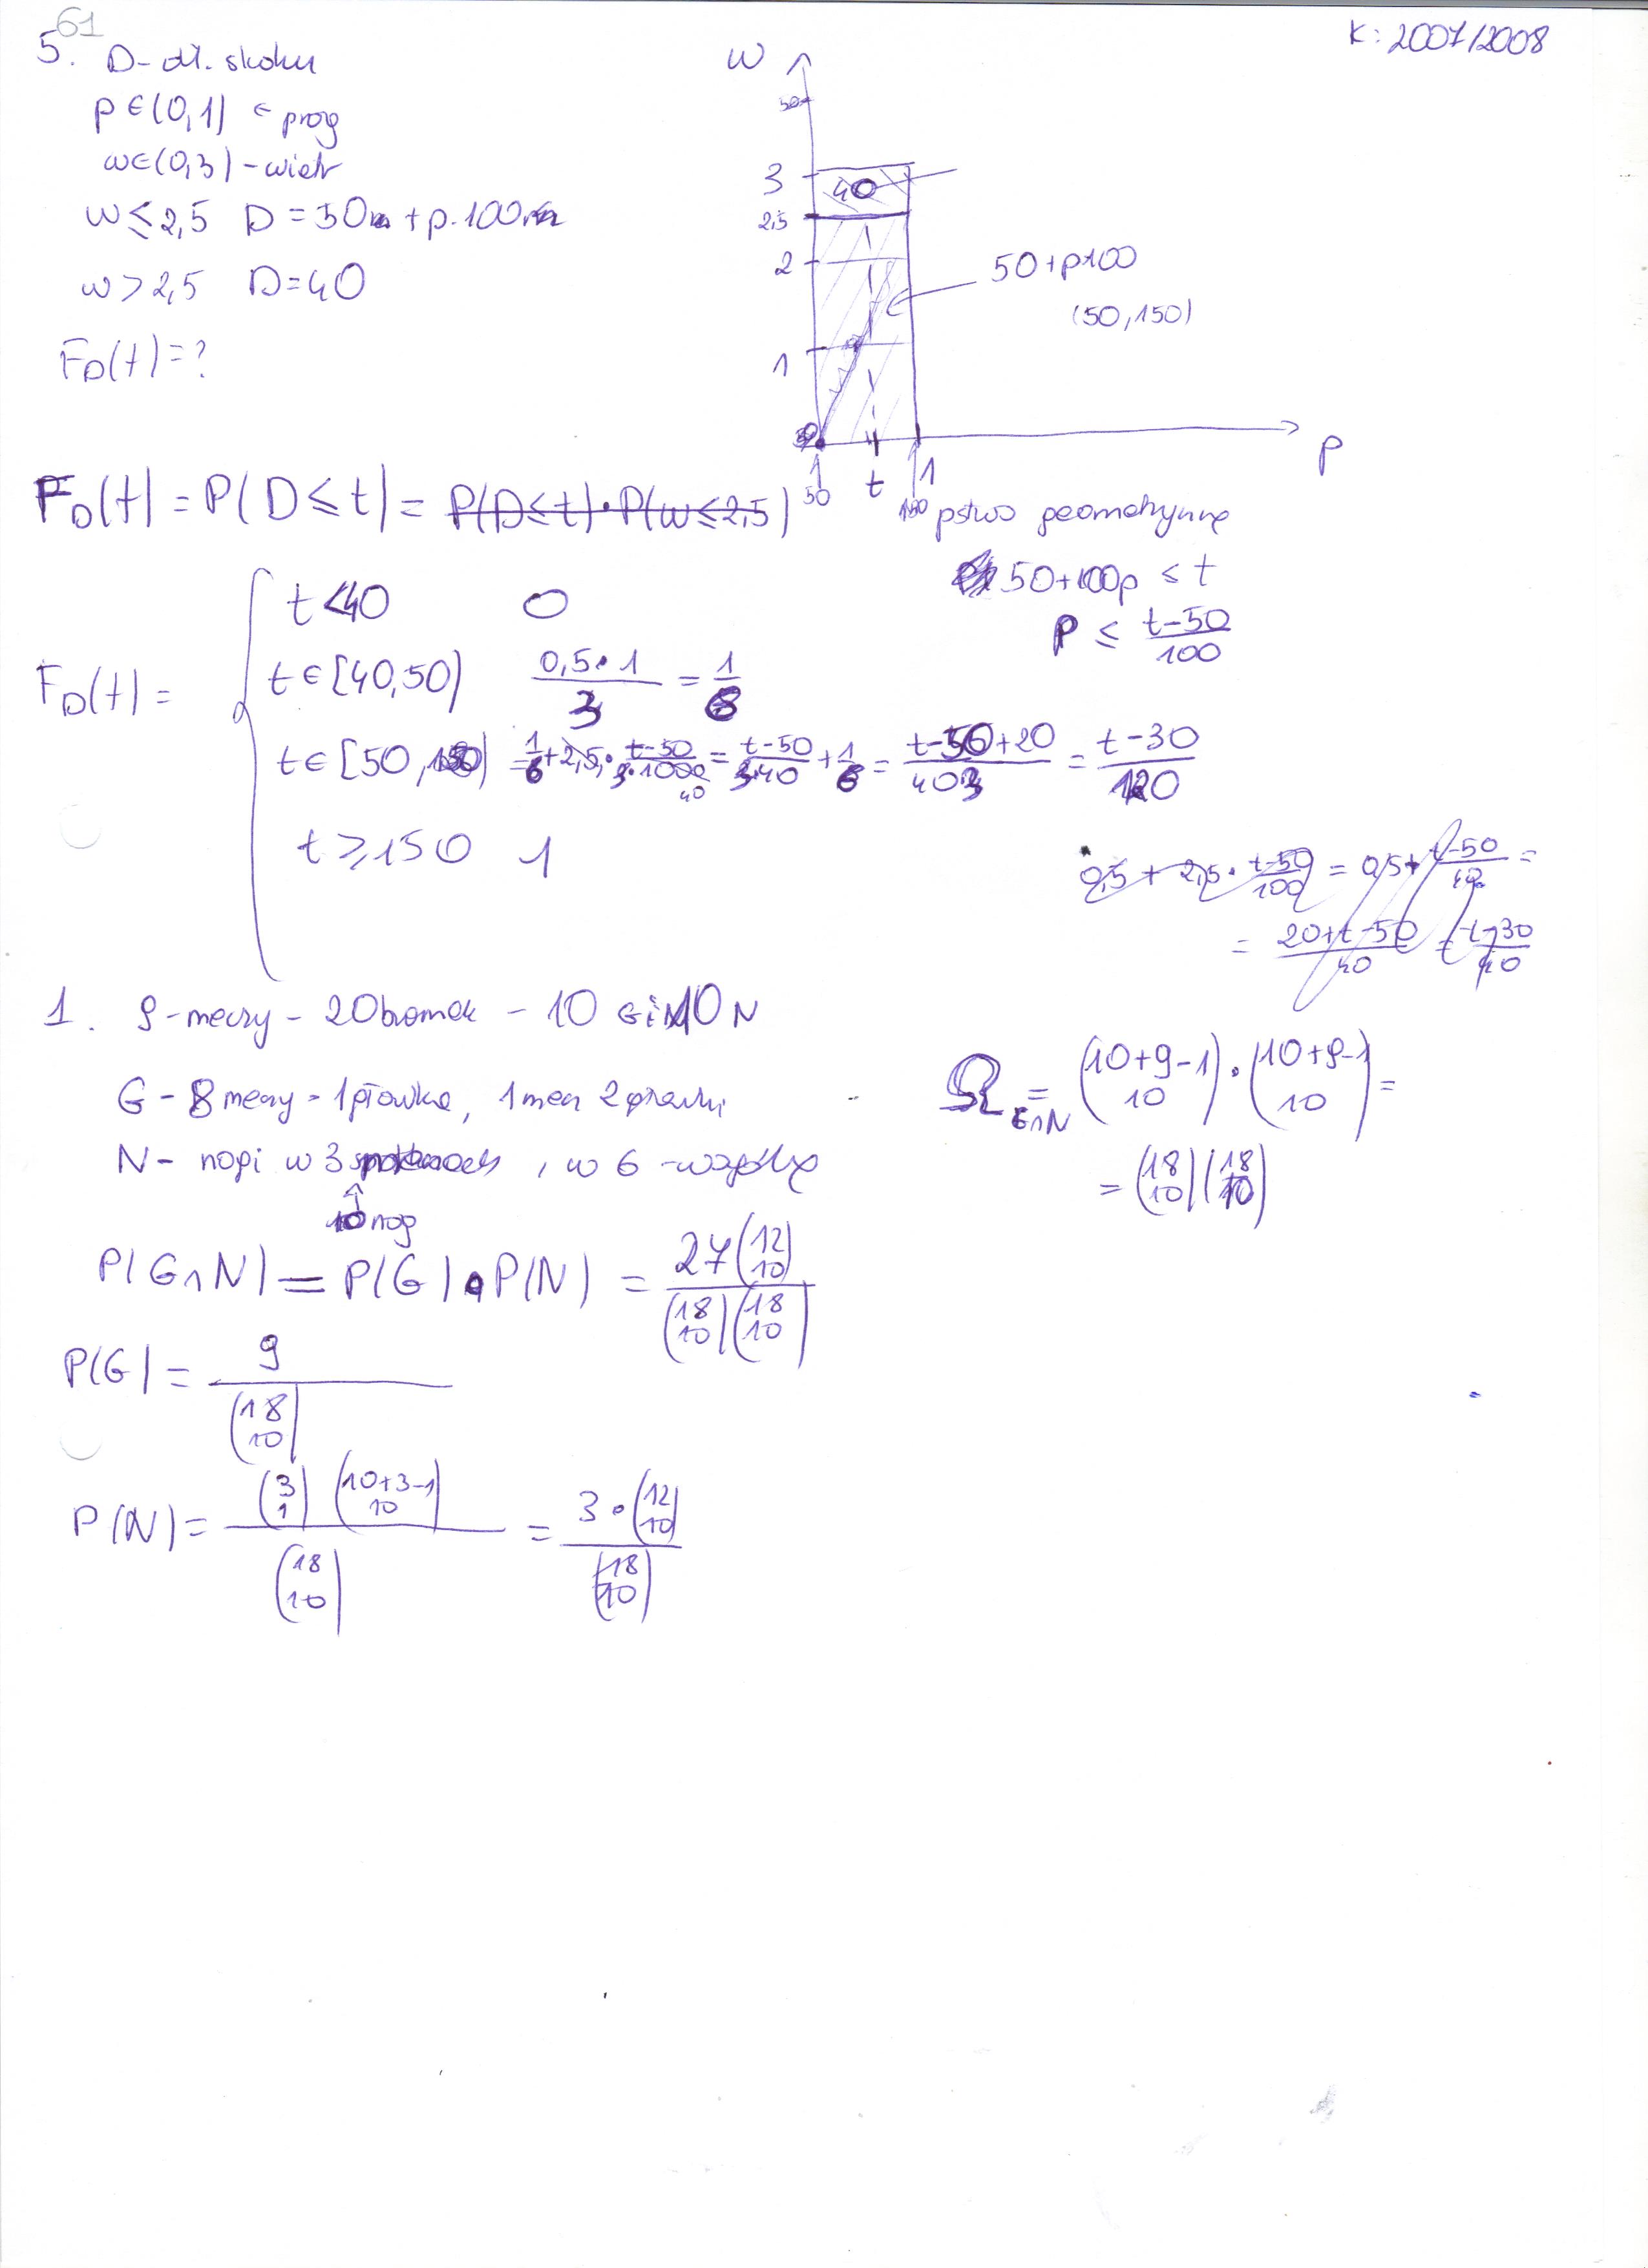 61
K: 2007/2008
5. D - dł. skoku
p ∈ (0,1) ← próg
w ∈ (0,3) - wiatr
w ≤ 2,5 D = 50m + p·100m
w > 2,5 D = 40
F_D(t) = ?
w
50
3
40
2,5
2
50+p100
(50,150)
1
p
1 1
50 t 150
F_D(t) = P(D ≤ t) = P(D≤t)·P(w≤2,5)
pstwo geometryczne
50+100p ≤ t
p ≤ (t-50)/100
F_D(t) =
t < 40 0
t ∈ [40,50) (0,5·1)/3 = 1/6
t ∈ [50,150) = 1/6 + 2,5·(t-50)/(3·100) = (t-50)/(3·40) + 1/6 = (t-50+20)/(40·3) = (t-30)/120
t ≥ 150 1
0,5 + 2,5·(t-50)/100 = 0,5 + (t-50)/40 =
= (20+t-50)/40 = (t-30)/40
1. 9-meczy - 20 bramek - 10 G i 10 N
G - 8 meczy - 1 główka, 1 mecz 2 główki
N - nogi w 3 spotkaniach, w 6 -
10 nog
Ω_{G∩N} = (10+9-1 \choose 10)·(10+9-1 \choose 10) =
= (18 \choose 10)(18 \choose 10)
P(G∩N) = P(G)·P(N) = 27(12 \choose 10) / (18 \choose 10)(18 \choose 10)
P(G) = 9 / (18 \choose 10)
P(N) = (3 \choose 1)(10+3-1 \choose 10) / (18 \choose 10) = 3·(12 \choose 10) / (18 \choose 10)